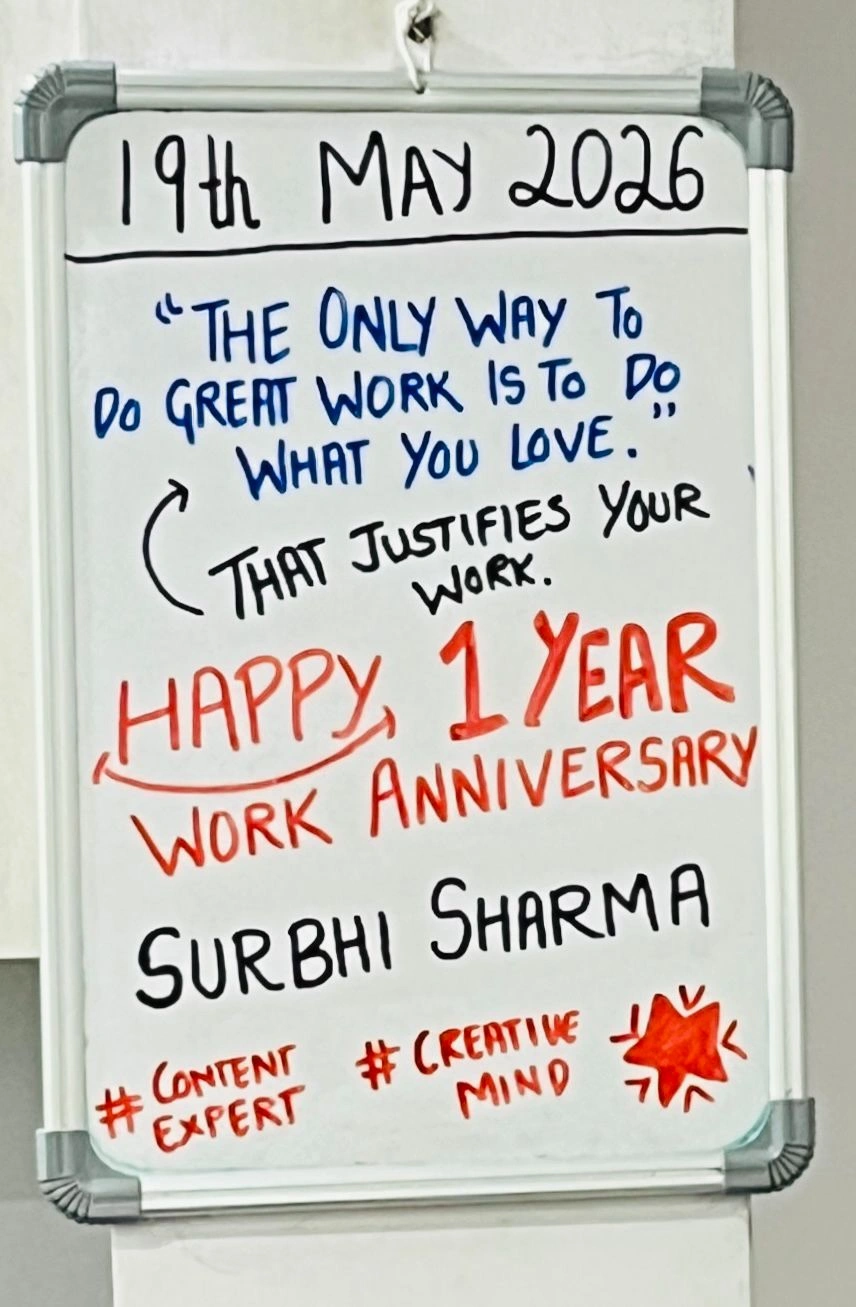 19th MAY 2026
"THE ONLY WAY TO
DO GREAT WORK IS TO DO
WHAT YOU LOVE."
THAT JUSTIFIES YOUR
WORK.
HAPPY 1 YEAR
WORK ANNIVERSARY
SURBHI SHARMA
# CONTENT EXPERT
# CREATIVE MIND